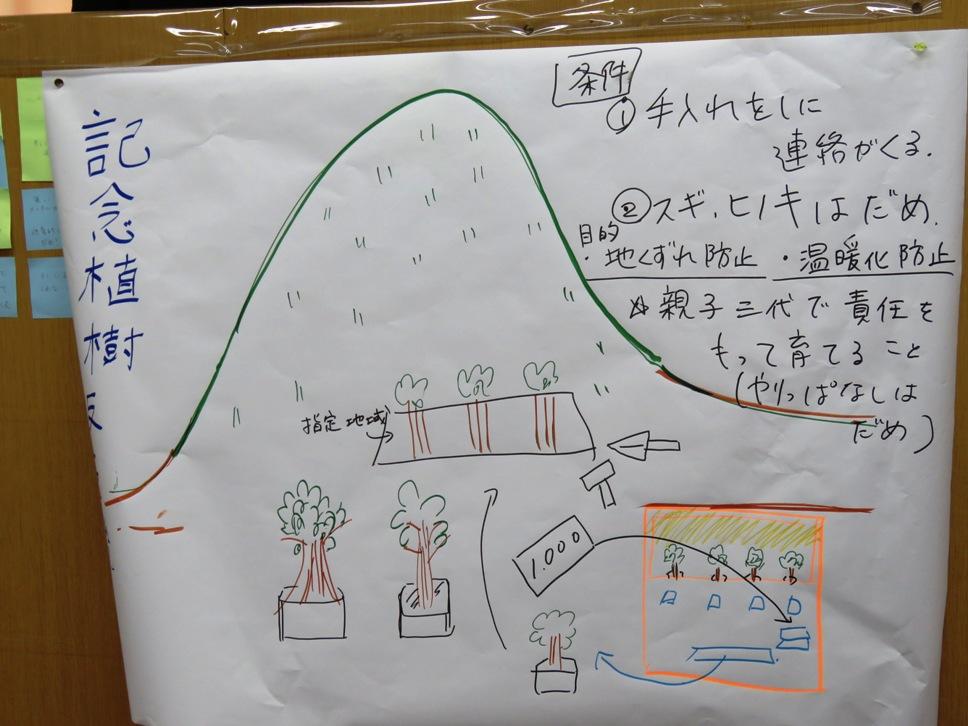 記念植樹
条件
① 手入れをしに
連絡がくる.
② スギ、ヒノキはだめ.
目的
・地くずれ防止 ・温暖化防止
親子三代で責任を
もって育てること
(やりっぱなしは
だめ)
指定地域
1.000